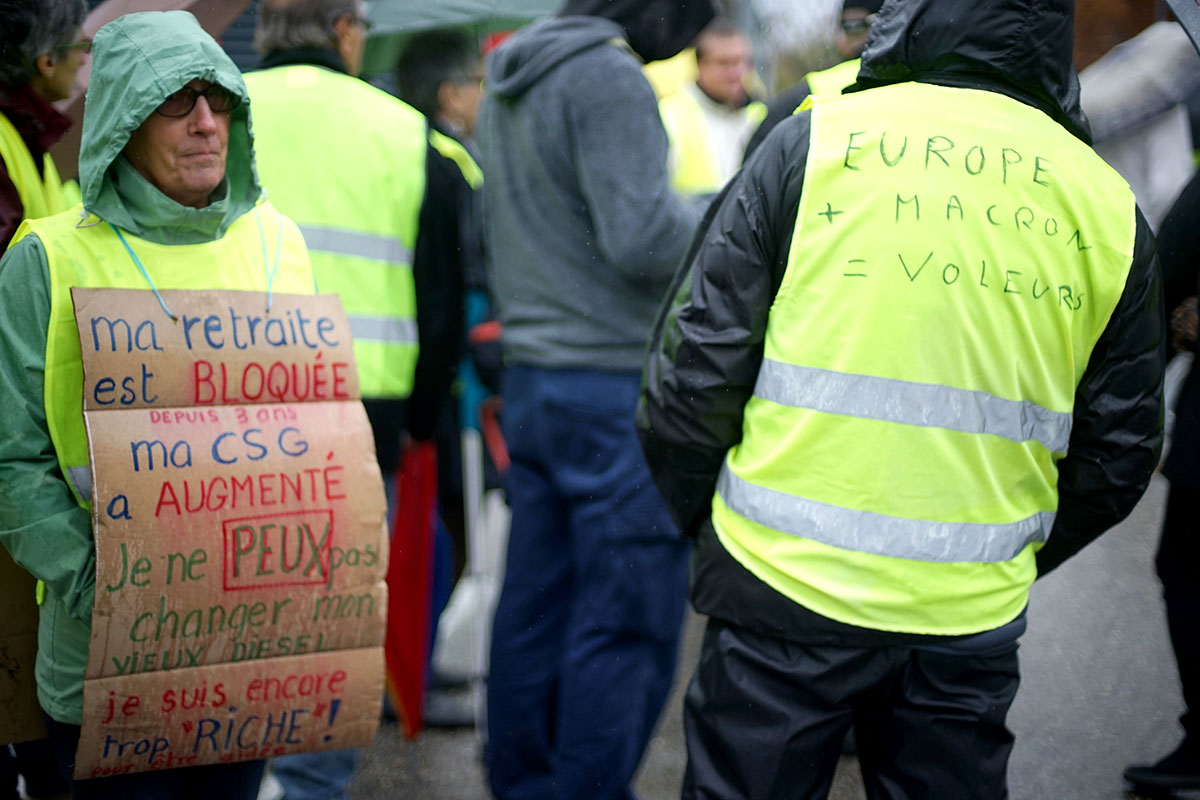 ma retraite
est BLOQUÉE
DEPUIS 3 ans
ma CSG
a AUGMENTÉ
Je ne PEUX pas
changer mon
VIEUX DIESEL
je suis encore
trop "RICHE"!
pour être
EUROPE
+ MACRON
= VOLEURS